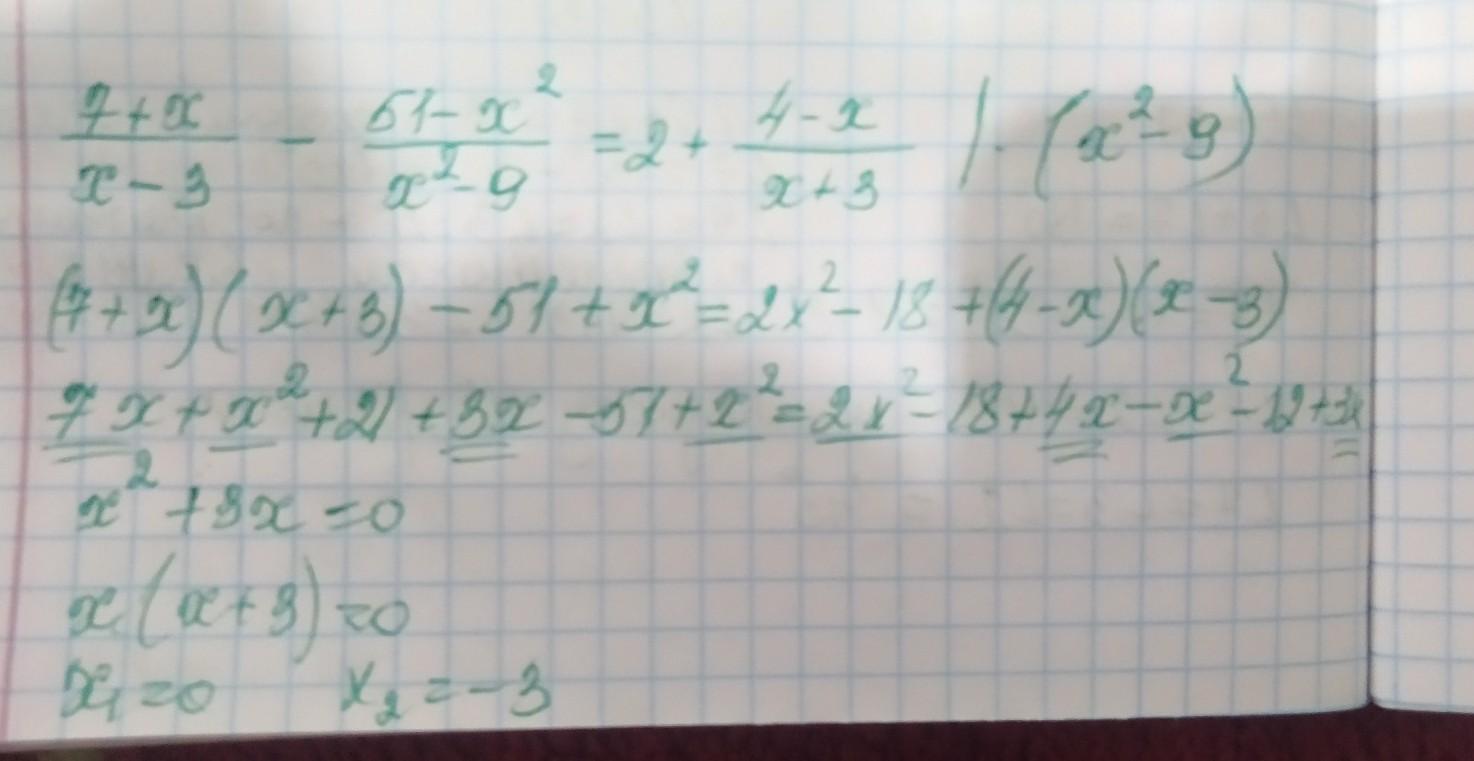 (7+x)/(x-3) - (51-x²)/(x²-9) = 2 + (4-x)/(x+3) | · (x²-9)
(7+x)(x+3) - 51 + x² = 2x² - 18 + (4-x)(x-3)
7x + x² + 21 + 3x - 51 + x² = 2x² - 18 + 4x - x² - 12 + 3x
x² + 3x = 0
x(x+3) = 0
x₁ = 0 x₂ = -3